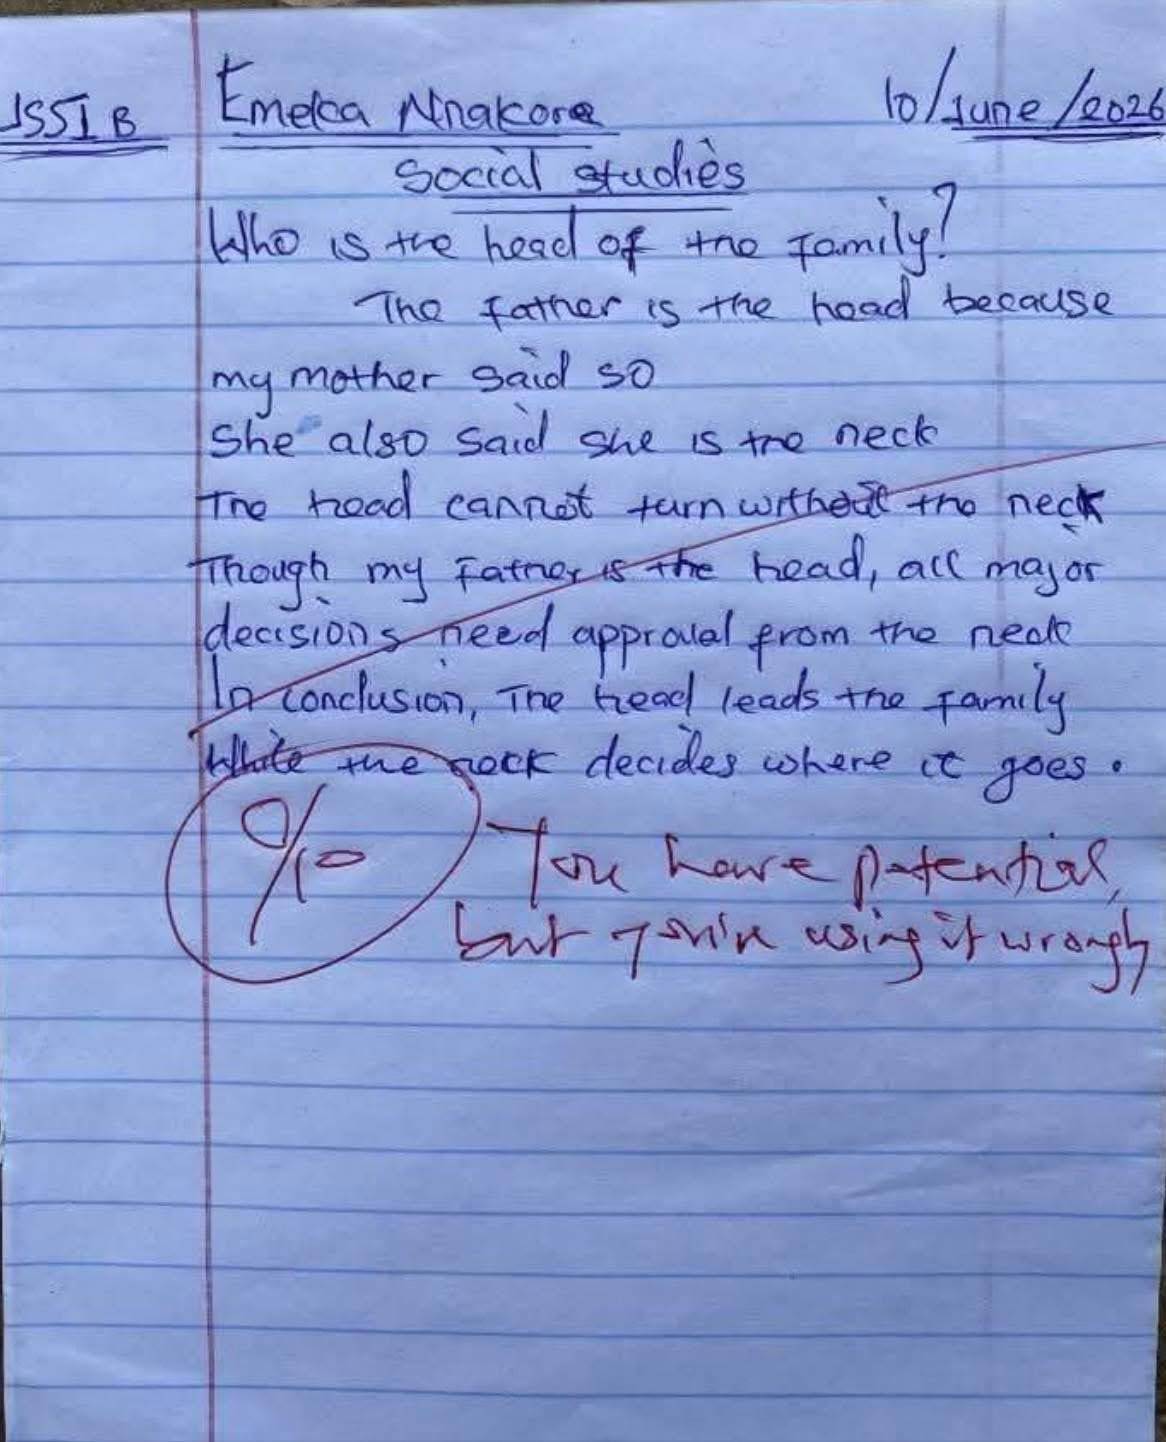 JSS1B Emeka Nnakore 10/June/2026
Social studies
Who is the head of the family?
The father is the head because
my mother said so
She also said she is the neck
The head cannot turn without the neck
Though my Father is the head, all major
decisions need approval from the neck
In conclusion, The head leads the family
While the neck decides where it goes.
0/10 You have potential,
but you're using it wrongly